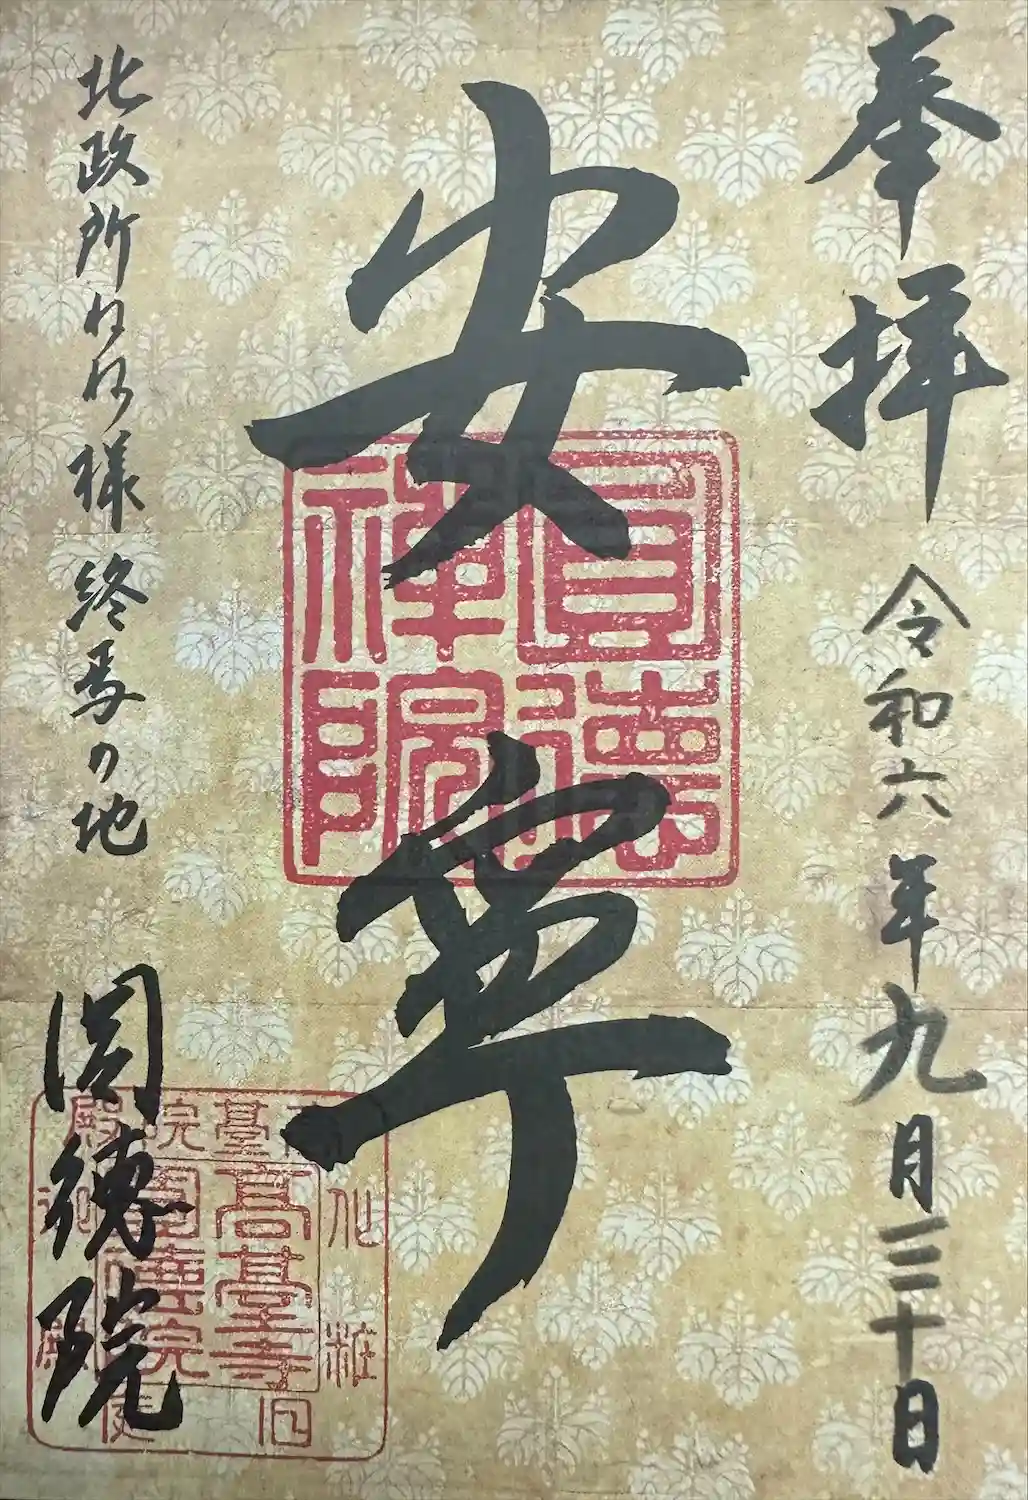 奉拝
令和六年九月三十日
安寧
圓徳禅院
北政所ねね様終焉の地
圓徳院
高臺寺
圓徳院